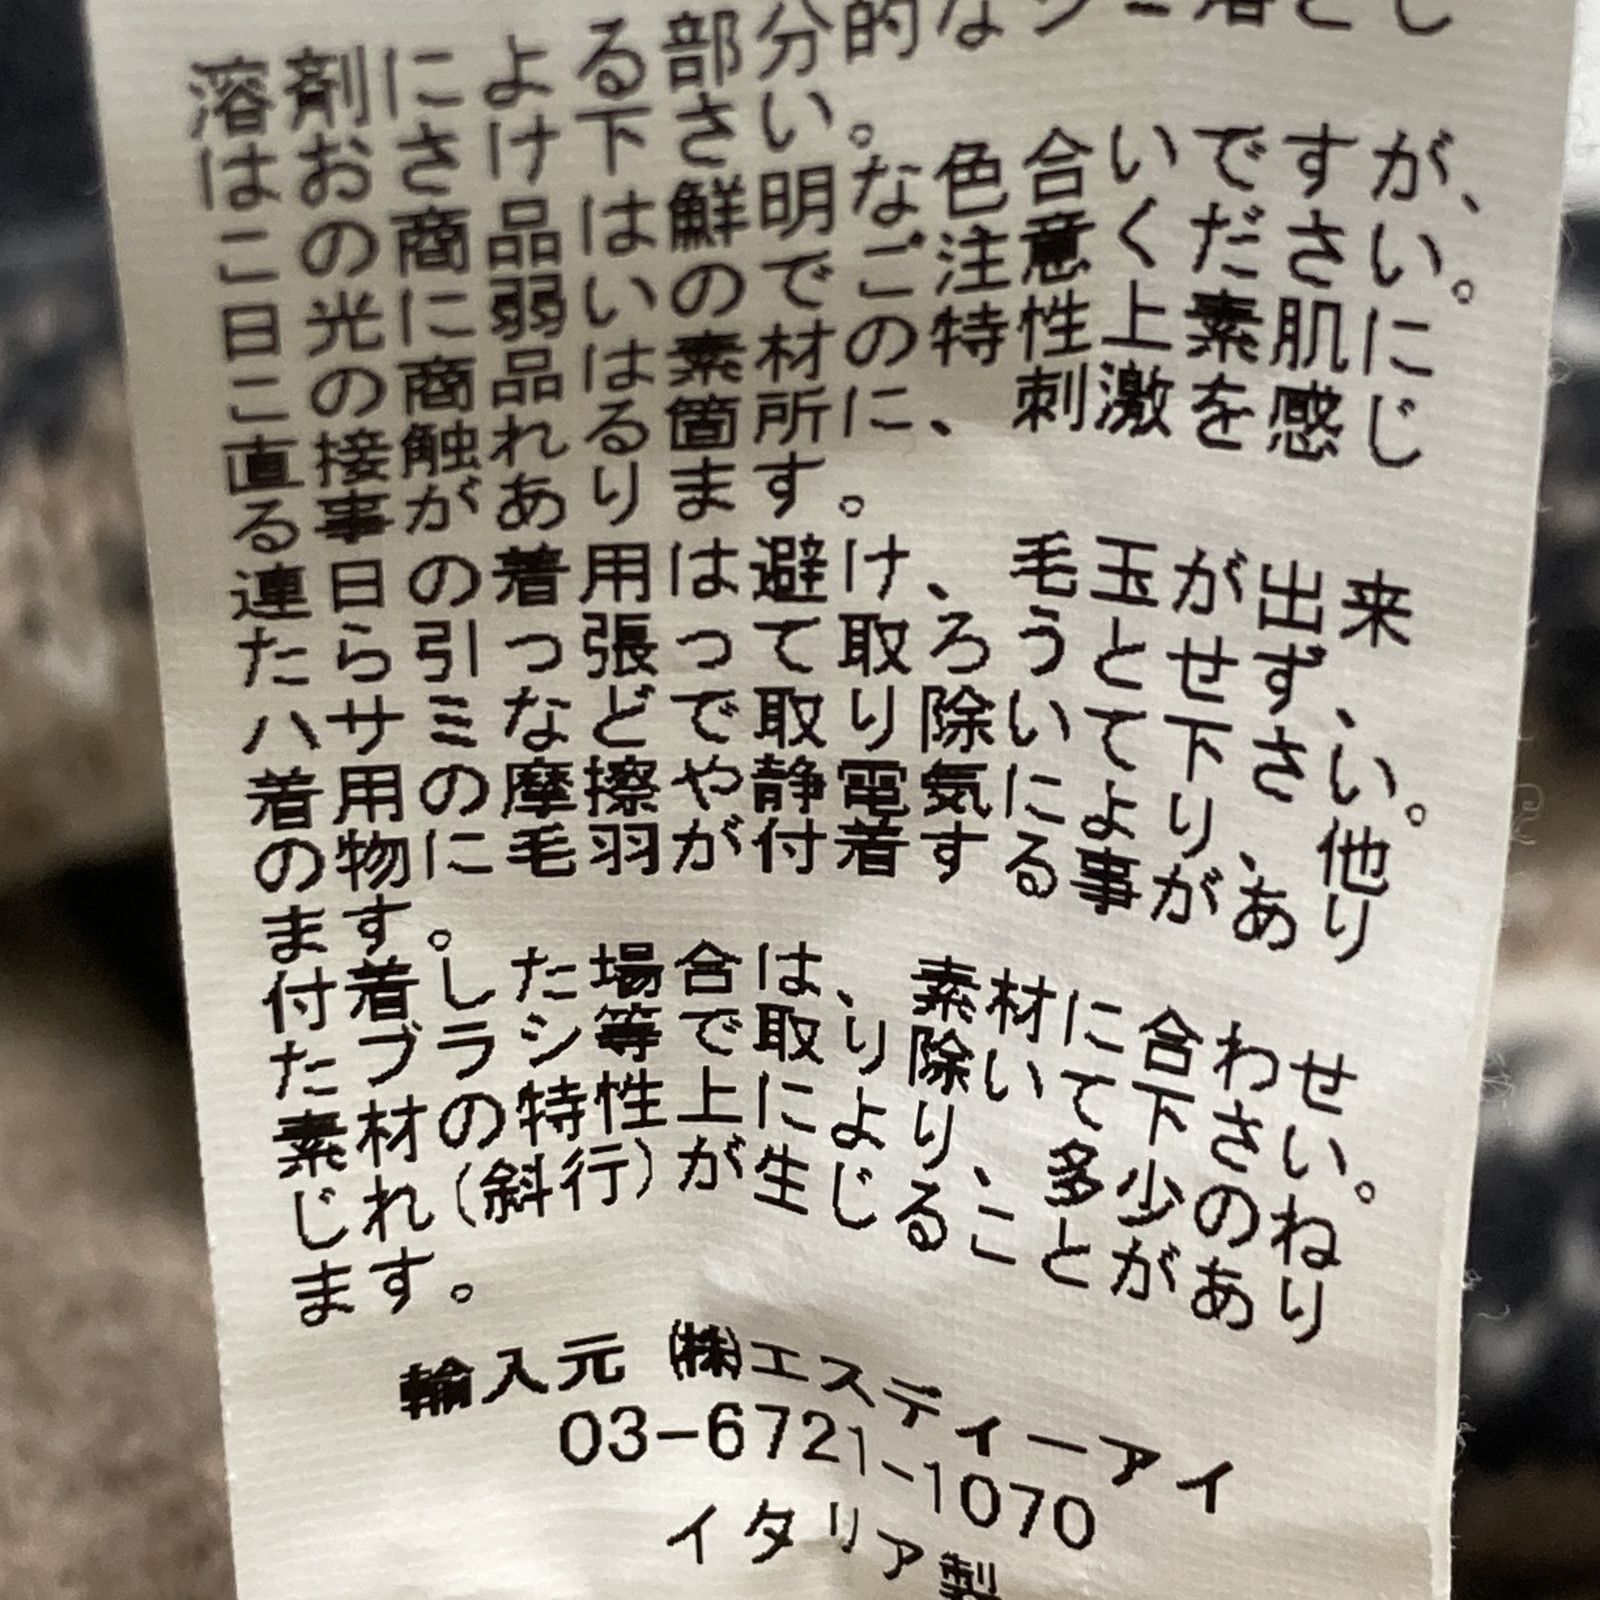 溶剤による部分的なシミ落とし
はおさけ下さい。
この商品は鮮明な色合いですが、
日光に弱いのでご注意ください。
この商品は素材の特性上素肌に
直接触れる箇所に、刺激を感じ
る事があります。
連日の着用は避け、毛玉が出来
たら引っ張って取ろうとせず、
ハサミなどで取り除いて下さい。
着用の摩擦や静電気により、他
の物に毛羽が付着する事があり
ます。
付着した場合は、素材に合わせ
たブラシ等で取り除いて下さい。
素材の特性上により、多少のね
じれ(斜行)が生じることがあり
ます。
輸入元 ㈱エスディーアイ
03-6721-1070
イタリア製